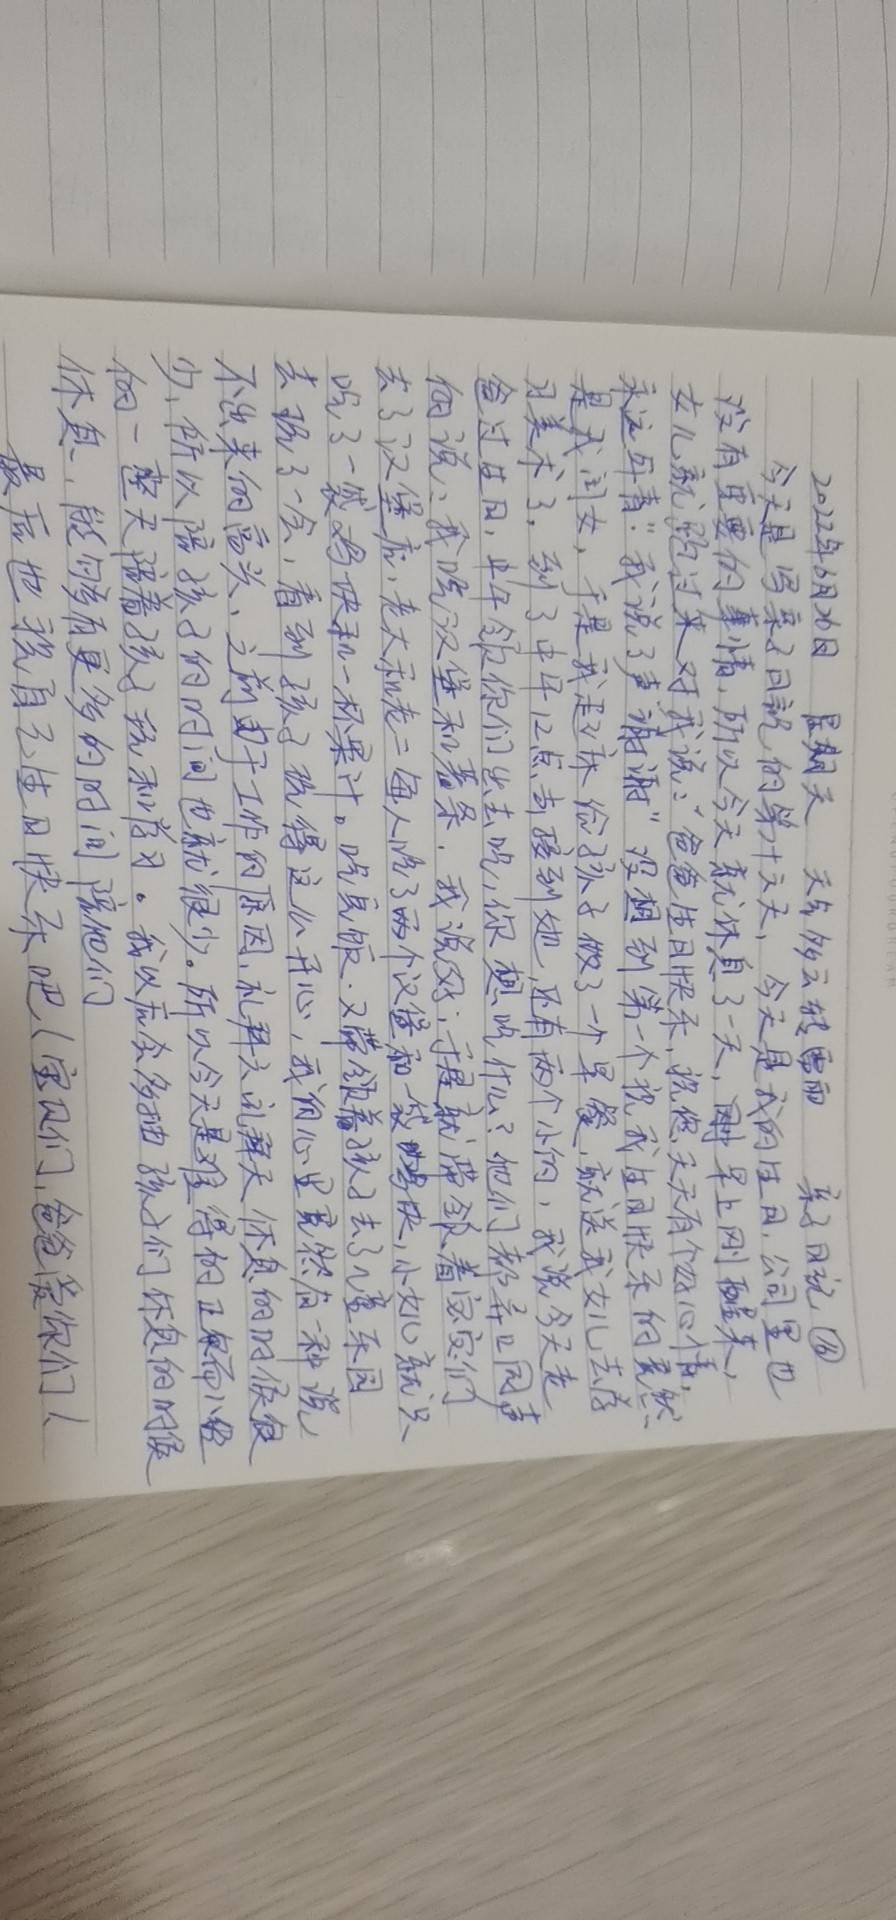 2022年6月26日 星期天 天气多云转雷雨 亲子日记 ⑯
今天是写亲子日记的第十六天，今天是我的生日，公司里也
没有重要的事情，所以今天就休息了一天，早上刚醒来，
女儿就跑过来对我说：“爸爸生日快乐，祝您天天有个好心情，
永远年青.”我说了声“谢谢”没想到第一个祝我生日快乐的竟然
是我闺女，于是我起床给孩子做了一个早餐，就送我女儿去学
习美术了，到了中午12点去接到她，还有两个小的，我说今天老
爸过生日，中午领你们出去吃，你想吃什么？他们都异口同声
的说：我吃汉堡和薯条，我说好，于是就带领着宝宝们
去了汉堡店，老大和老二每人吃了两个汉堡和一袋鸡块，小女儿就只
吃了一袋鸡块和一杯果汁。吃完饭，又带领着孩子去了儿童乐园
去玩了一会，看到孩子玩得这么开心，我的心里竟然有一种说
不出来的高兴，之前由于工作的原因，礼拜六礼拜天休息的时候很
少，所以陪孩子的时间也就很少。所以今天是难得的
的一整天陪着孩子玩和学习。我以后会多抽孩子们休息的时候
休息，能够有更多的时间陪他们
最后也祝自己生日快乐吧！宝贝们，爸爸爱你们！